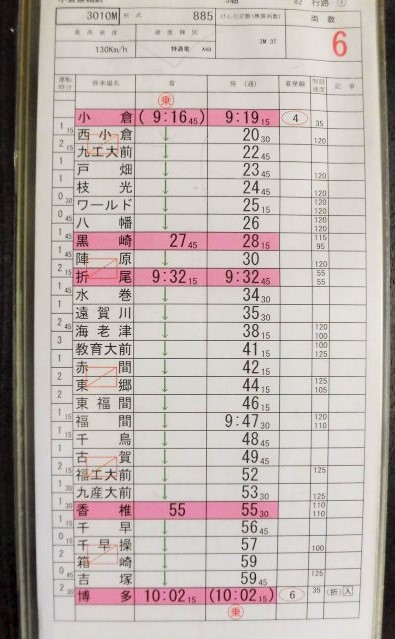 3010M 形式 885 けん引定数(換算両数) 両数
82 行路 ①
最高速度 速度種別 3M 3T 6
130Km/h 特通電 A48
運転時分 停車場名 着 発(通) 着発線 制限速度 記事
乗
小倉 (9:16 45) 9:19 15 4 35
1 15 西小倉 ↓ 20 30 120
2 15 九工大前 ↓ 22 45
1 戸畑 ↓ 23 45 120
1 枝光 ↓ 24 45 120
0 30 ワールド ↓ 25 15 120
0 45 八幡 ↓ 26 120
1 45 黒崎 27 45 28 15 115 95
1 45 陣原 ↓ 30 120
2 15 折尾 9:32 15 9:32 45 55 55
1 45 水巻 ↓ 34 30
1 遠賀川 ↓ 35 30
2 45 海老津 ↓ 38 15 120 100
3 教育大前 ↓ 41 15 100 125
1 赤間 ↓ 42 15
2 東郷 ↓ 44 15 125 105
2 東福間 ↓ 46 15
1 15 福間 ↓ 9:47 30 120 110
1 15 千鳥 ↓ 48 45
1 古賀 ↓ 49 45
2 15 福工大前 ↓ 52 125
1 30 九産大前 ↓ 53 30
1 30 香椎 55 55 30 110 110
1 15 千早 ↓ 56 45
0 15 千早操 ↓ 57 100
2 箱崎 ↓ 59
0 45 吉塚 ↓ 59 45 125
2 30 博多 10:02 15 (10:02 15) 6 35 (折) 入
乗